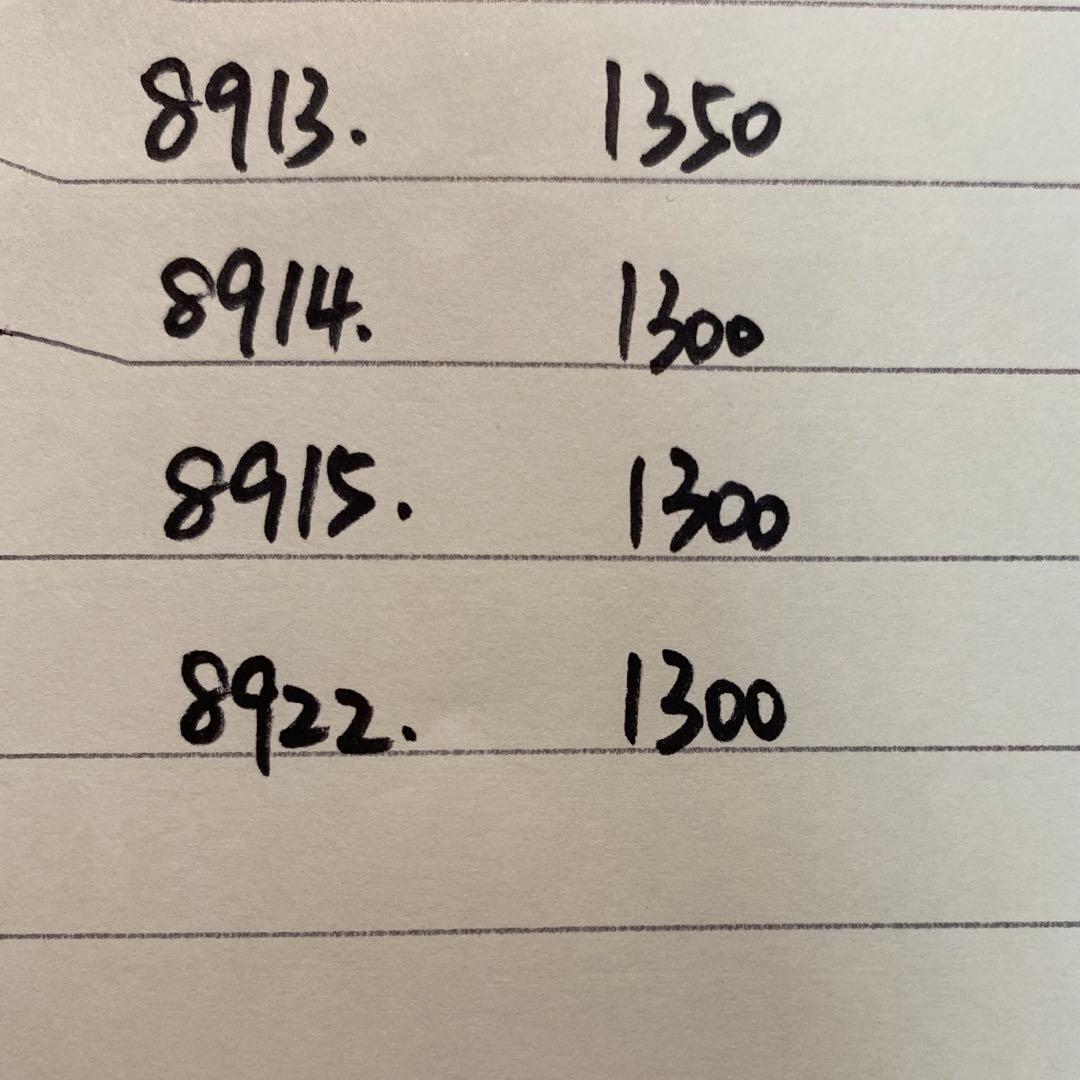 8913. 1350
8914. 1300
8915. 1300
8922. 1300